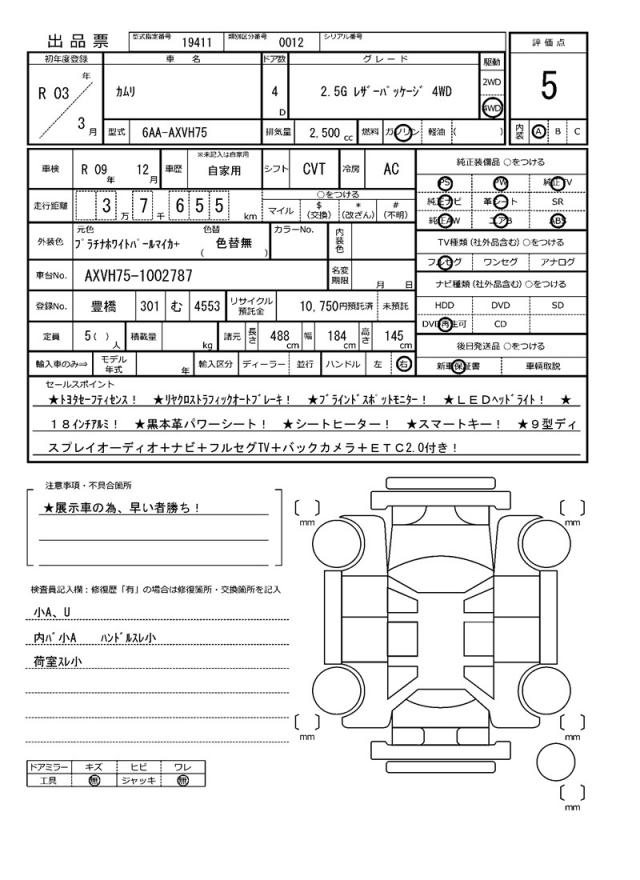 出品票 型式指定番号 19411 類別区分番号 0012 シリアル番号
評価点
5
内装 A B C
初年度登録 車名 ドア数 グレード 駆動
R 03 年 3 月 カムリ 4 D 2.5G ﾚｻﾞｰﾊﾟｯｹｰｼﾞ 4WD 2WD 4WD
型式 6AA-AXVH75 排気量 2,500 cc 燃料 ガソリン 軽油 ( )
車検 R 09 年 12 月 車歴 ※未記入は自家用 自家用 シフト CVT 冷房 AC
走行距離 3 万 7 千 6 5 5 km ○をつける
マイル $ (交換) * (改ざん) # (不明)
外装色 元色 ﾌﾟﾗﾁﾅﾎﾜｲﾄﾊﾟｰﾙﾏｲｶ+ 色替 ( 色替無 ) カラーNo. 内装色
車台No. AXVH75-1002787 名変期限 月 日
登録No. 豊橋 301 む 4553 リサイクル預託金 10,750円預託済 未預託
定員 5 ( ) 人 積載量 kg 諸元 長さ 488 cm 幅 184 cm 高さ 145 cm
輸入車のみ⇒ モデル年式 年 輸入区分 ディーラー 並行 ハンドル 左 右
純正装備品 ○をつける
PS PW 純正TV
純正ナビ 革シート SR
純正AW エアB ABS
TV種類 (社外品含む) ○をつける
フルセグ ワンセグ アナログ
ナビ種類 (社外品含む) ○をつける
HDD DVD SD
DVD再生可 CD
後日発送品 ○をつける
新車保証書 車輌取説
セールスポイント
★ﾄﾖﾀｾｰﾌﾃｨｾﾝｽ！ ★ﾘﾔｸﾛｽﾄﾗﾌｨｯｸｵｰﾄﾌﾞﾚｰｷ！ ★ﾌﾞﾗｲﾝﾄﾞｽﾎﾟｯﾄﾓﾆﾀｰ！ ★ＬＥＤﾍｯﾄﾞﾗｲﾄ！ ★
１８ｲﾝﾁｱﾙﾐ！ ★黒本革パワーシート！ ★シートヒーター！ ★スマートキー！ ★９型ディ
スプレイオーディオ＋ナビ＋フルセグTV＋バックカメラ＋ＥＴＣ2.0付き！
注意事項・不具合箇所
★展示車の為、早い者勝ち！
検査員記入欄：修復歴「有」の場合は修復箇所・交換箇所を記入
小A、U
内ﾊﾞ小A ﾊﾝﾄﾞﾙｽﾚ小
荷室ｽﾚ小
ドアミラー キズ ヒビ ワレ
工具 無 ジャッキ 無
( ) mm
( ) mm
( ) mm
( ) mm
( ) mm